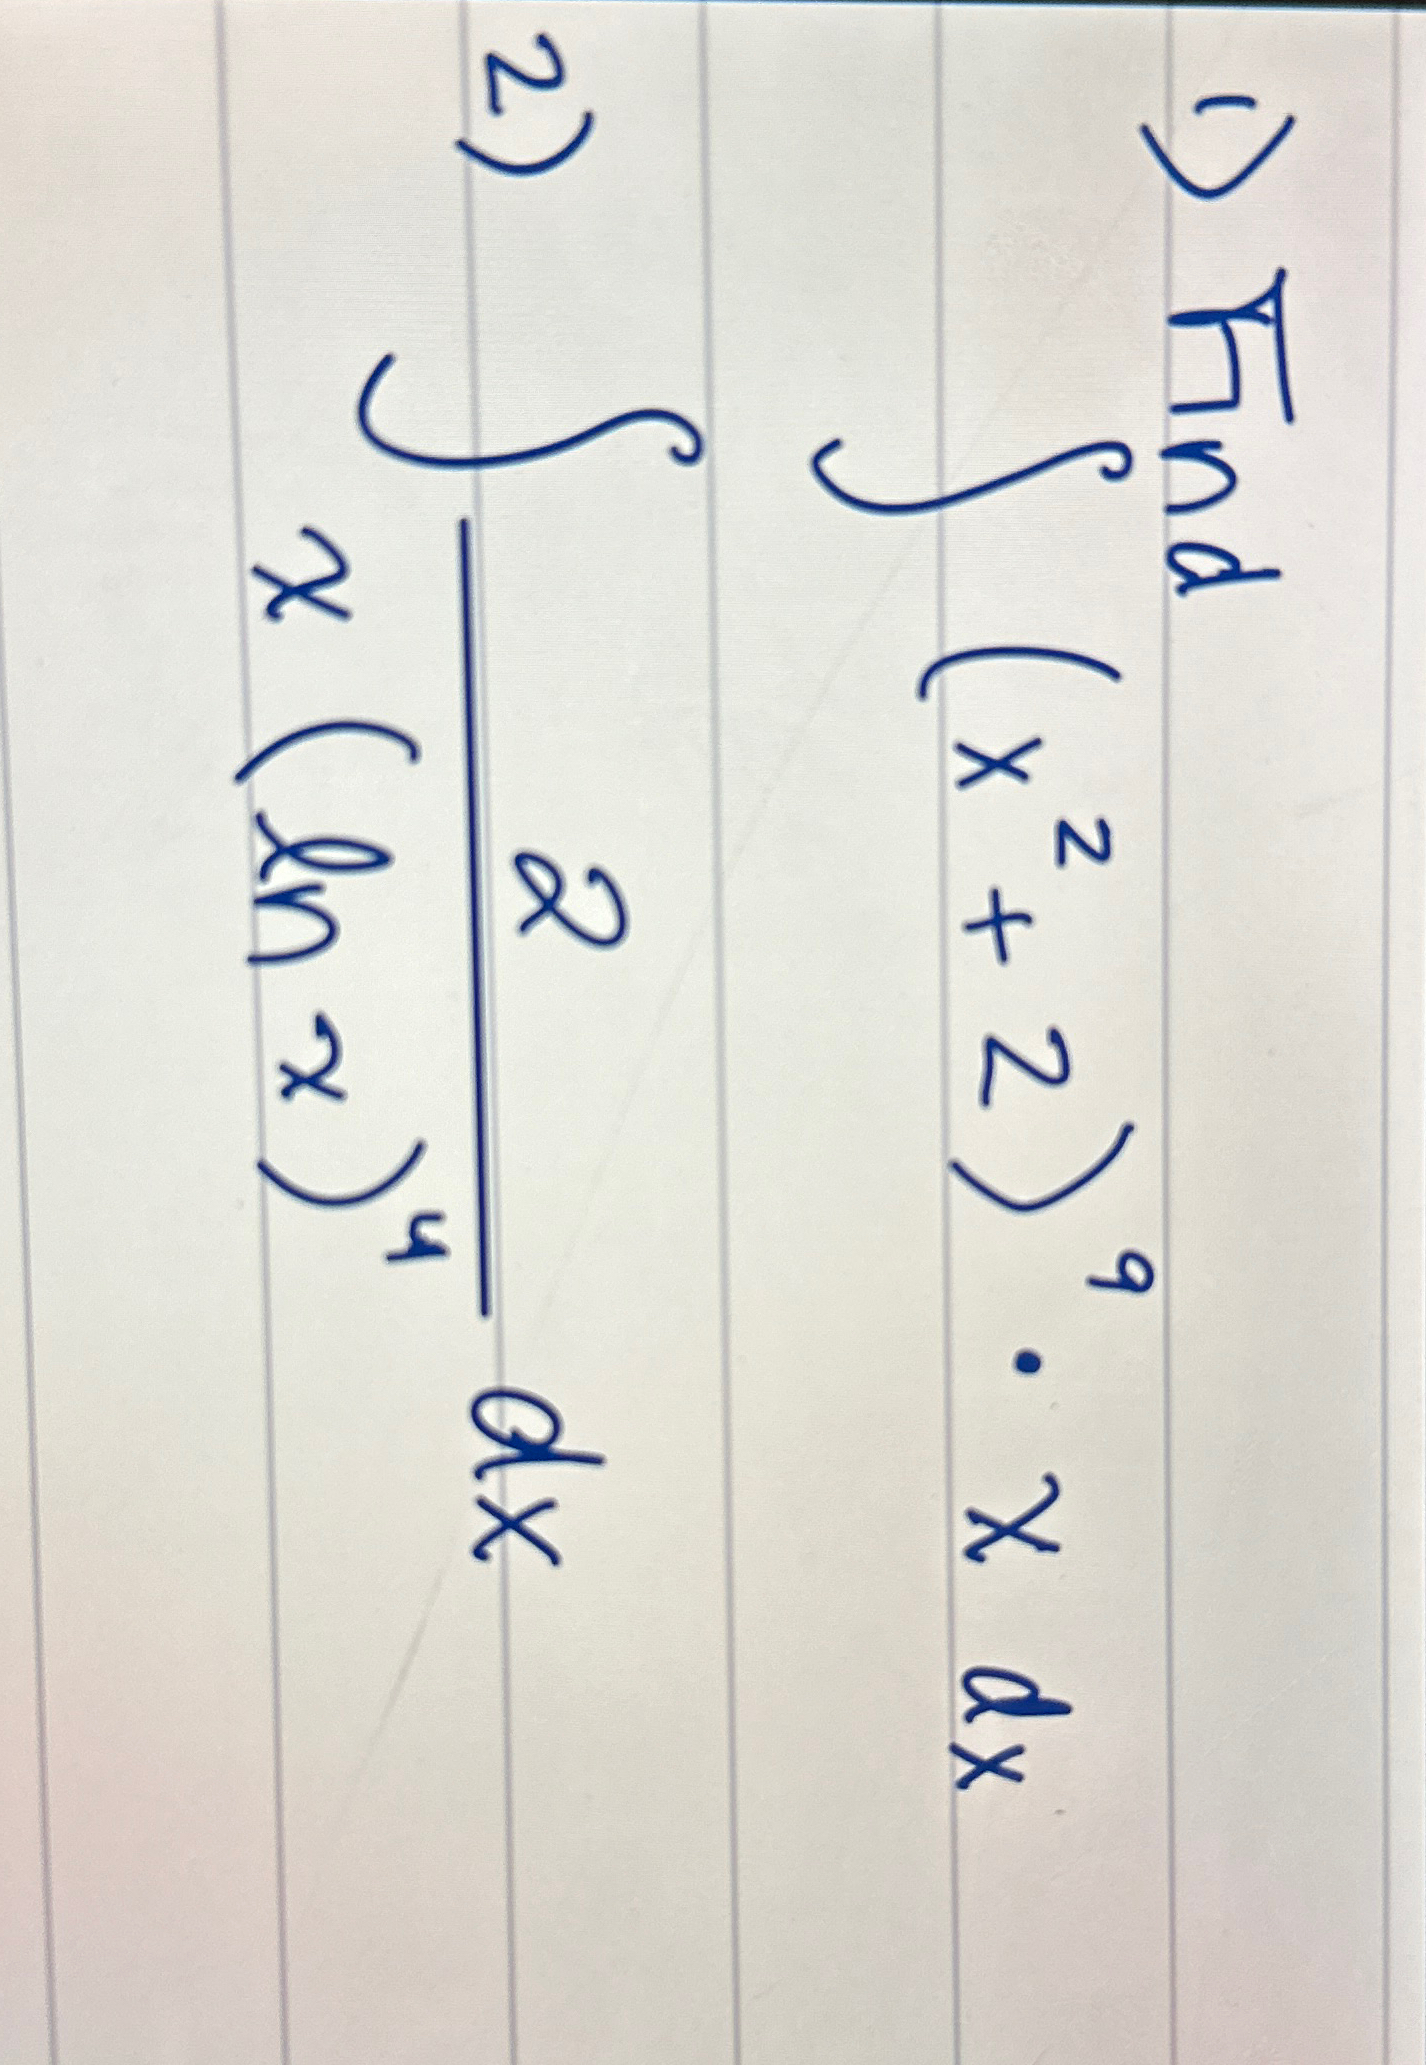 1) Find
∫ (x² + 2)⁹ · x dx
2) ∫ 2 / x (ln x)⁴ dx